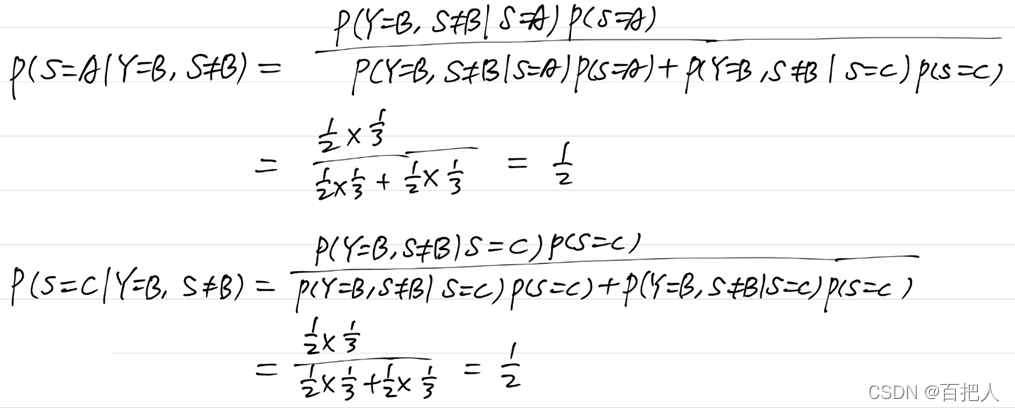 P(S=A|Y=B, S≠B) = P(Y=B, S≠B|S=A) P(S=A) / P(Y=B, S≠B|S=A)P(S=A) + P(Y=B, S≠B|S=C) P(S=C)
= 1/2 × 1/3 / 1/2 × 1/3 + 1/2 × 1/3 = 1/2
P(S=C|Y=B, S≠B) = P(Y=B, S≠B|S=C) P(S=C) / P(Y=B, S≠B|S=C) P(S=C) + P(Y=B, S≠B|S=C) P(S=C)
= 1/2 × 1/3 / 1/2 × 1/3 + 1/2 × 1/3 = 1/2
CSDN @百把人